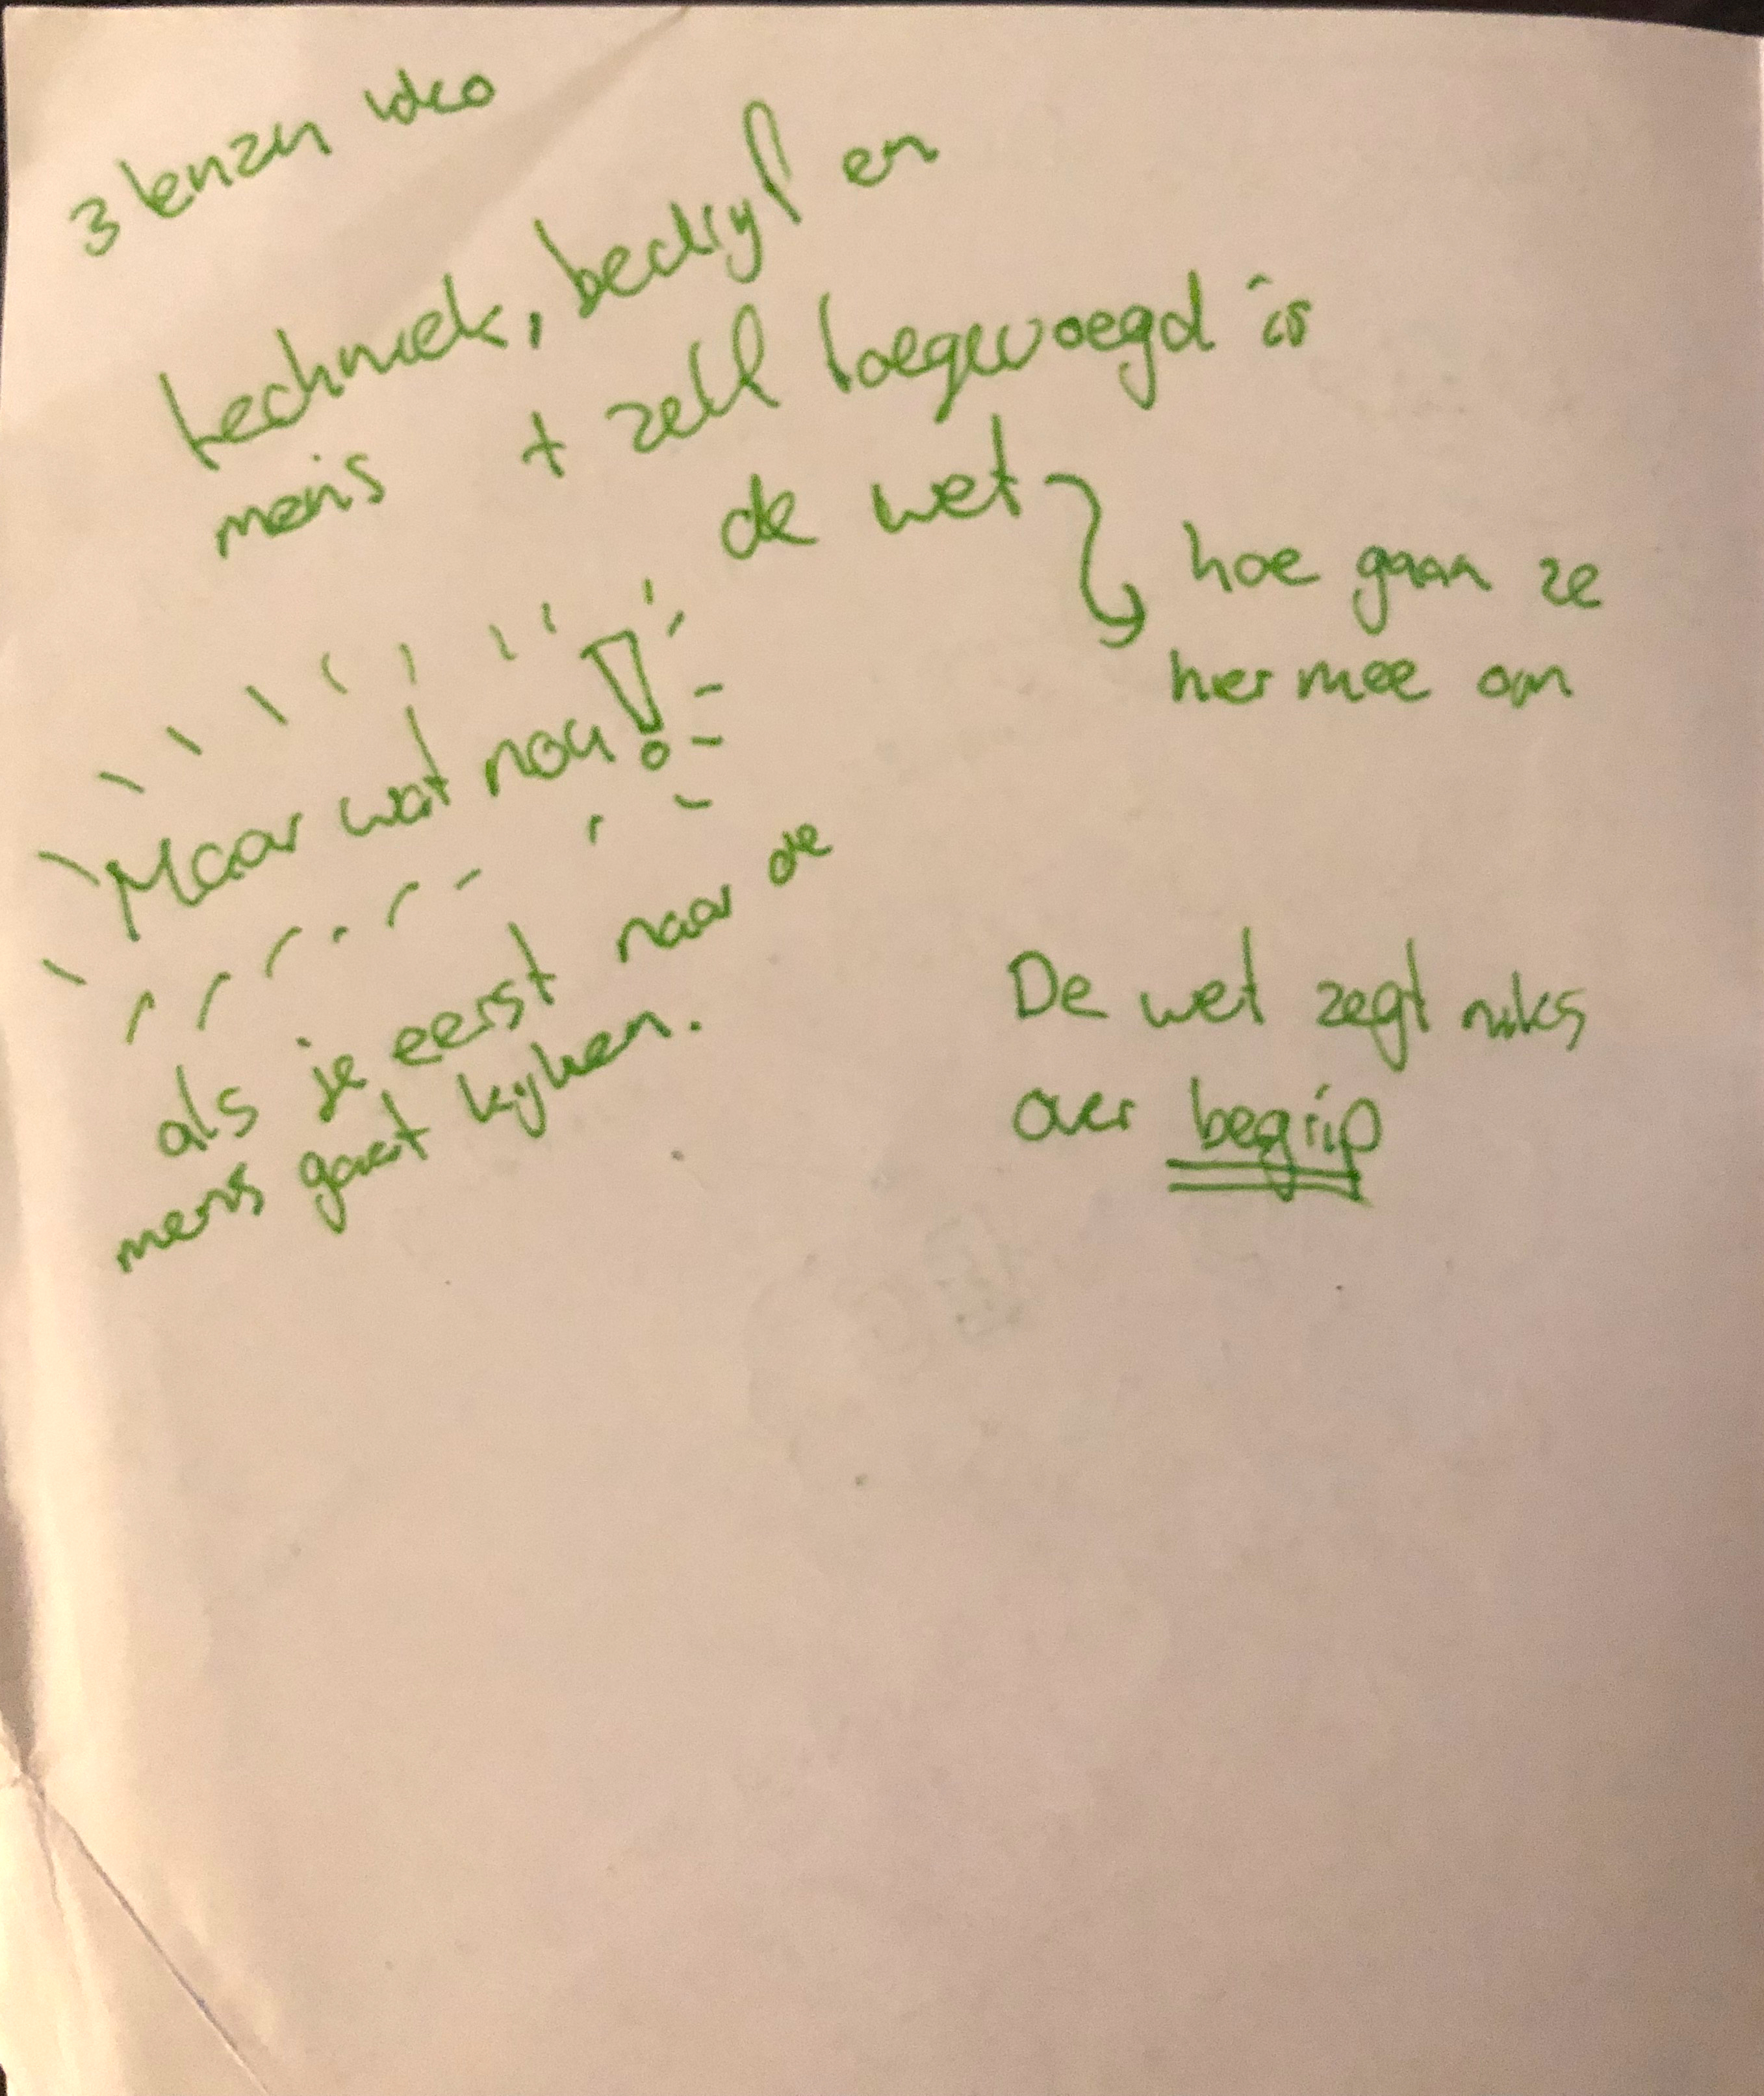 3 lenzen ideo
techniek, bedrijf en
mens + zelf toegevoegd is
de wet
hoe gaan ze
hier mee om
Maar wat nou!
als je eerst naar de
mens gaat kijken.
De wet zegt niks
over begrip